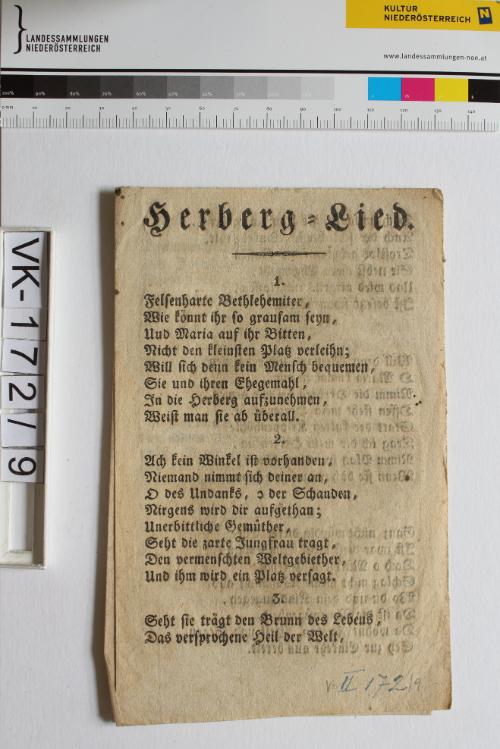 LANDESSAMMLUNGEN
NIEDERÖSTERREICH
KULTUR
NIEDERÖSTERREICH
www.landessammlungen-noe.at
VK-172/9
Herberg-Lied.
1.
Felsenharte Bethlehemiter,
Wie könnt ihr so grausam seyn,
Uud Maria auf ihr Bitten,
Nicht den kleinsten Platz verleihn;
Will sich denn kein Mensch bequemen,
Sie und ihren Ehegemahl,
In die Herberg aufzunehmen,
Weist man sie ab überall.
2.
Ach kein Winkel ist vorhanden,
Niemand nimmt sich deiner an,
O des Undanks, o der Schanden,
Nirgens wird dir aufgethan;
Unerbittliche Gemüther,
Seht die zarte Jungfrau tragt,
Den vermenschten Weltgebiether,
Und ihm wird ein Platz versagt.
3.
Seht sie trägt den Brunn des Lebens,
Das versprochene Heil der Welt,
V II 172/9